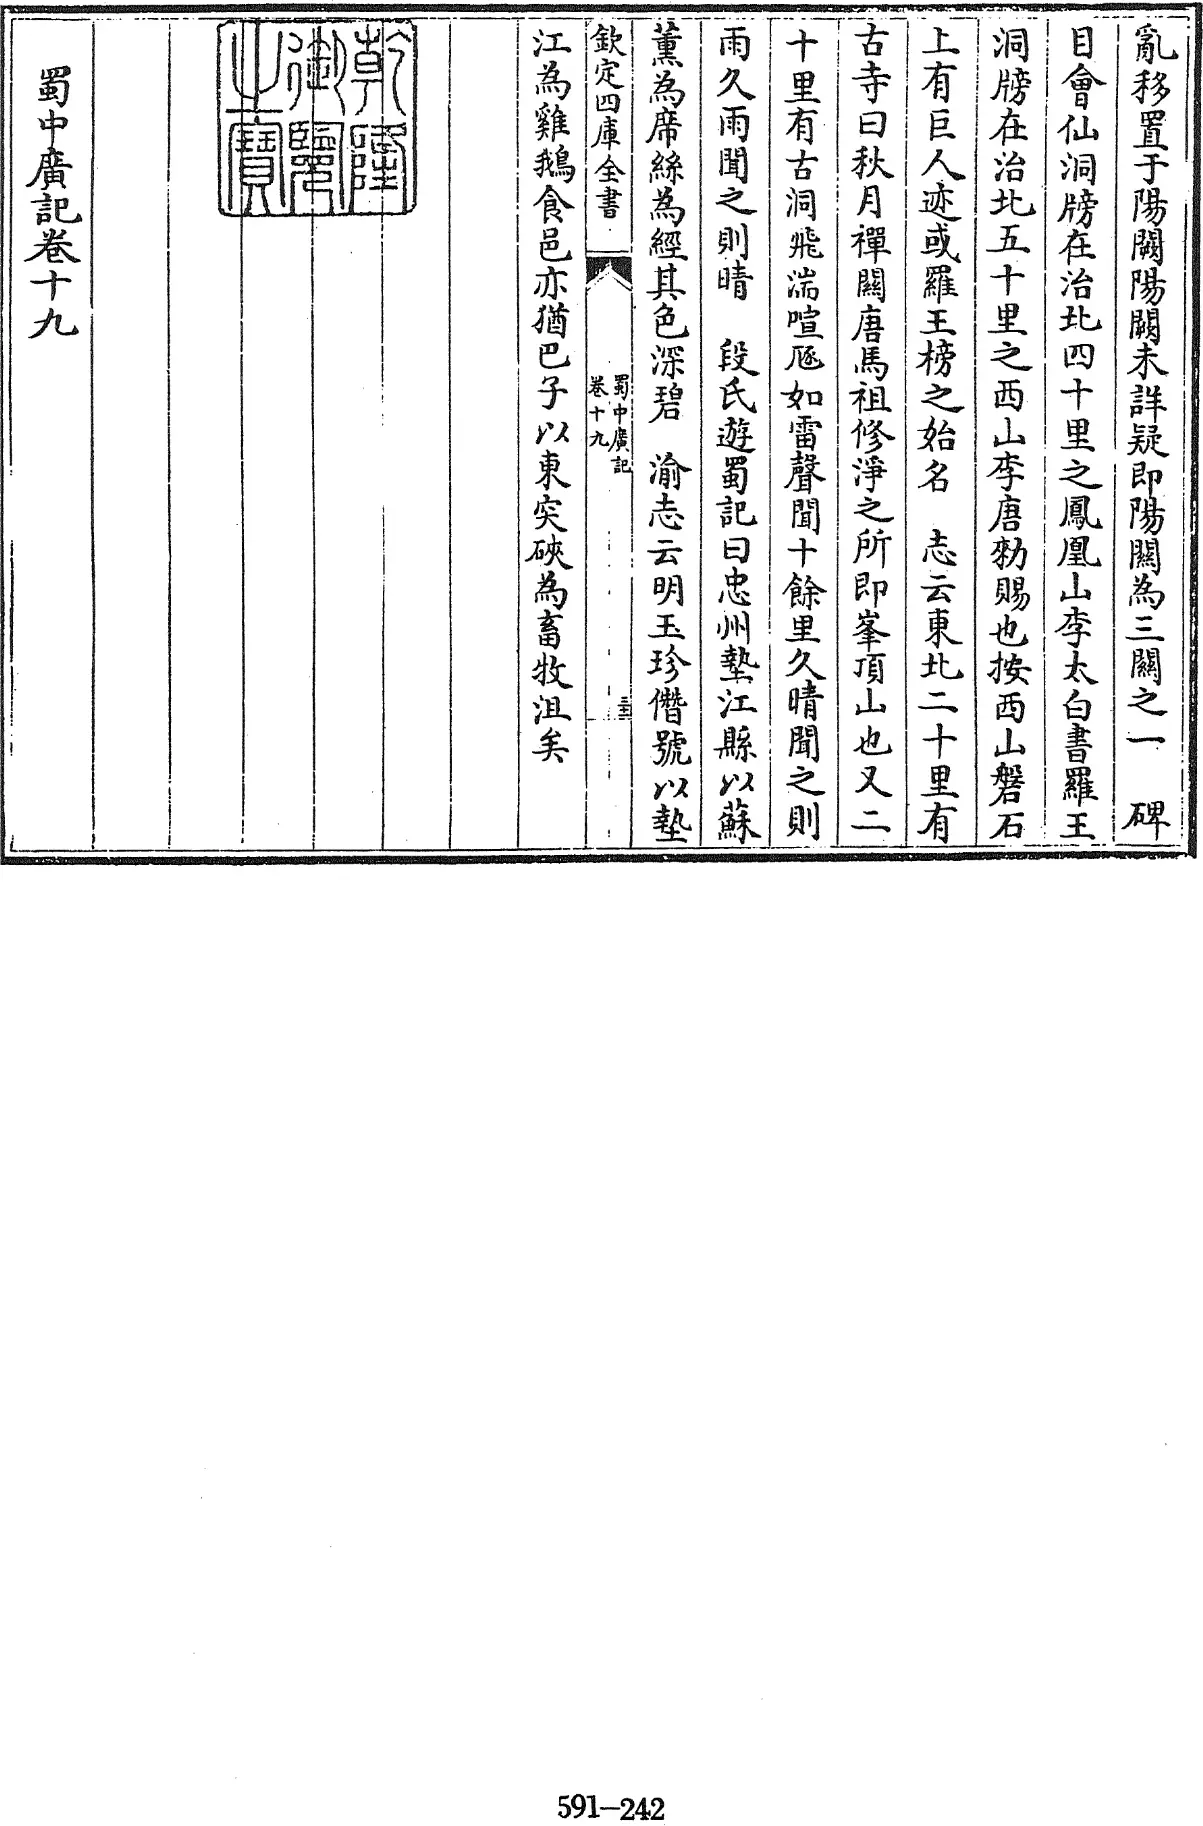 亂移置于陽關陽關未詳疑即陽關為三關之一　碑
目會仙洞牓在治北四十里之鳳凰山李太白書羅王
洞牓在治北五十里之西山李唐勑賜也按西山磐石
上有巨人迹或羅王榜之始名　志云東北二十里有
古寺曰秋月禪關唐馬祖修淨之所即峯頂山也又二
十里有古洞飛湍喧豗如雷聲聞十餘里久晴聞之則
雨久雨聞之則晴　段氏遊蜀記曰忠州墊江縣以蘇
薰為席絲為經其色深碧　渝志云明玉珍僭號以墊
欽定四庫全書
蜀中廣記
卷十九
江為雞鵝食邑亦猶巴子以東突硤為畜牧沮矣
乾隆
御覽
之寶
蜀中廣記卷十九
591-242